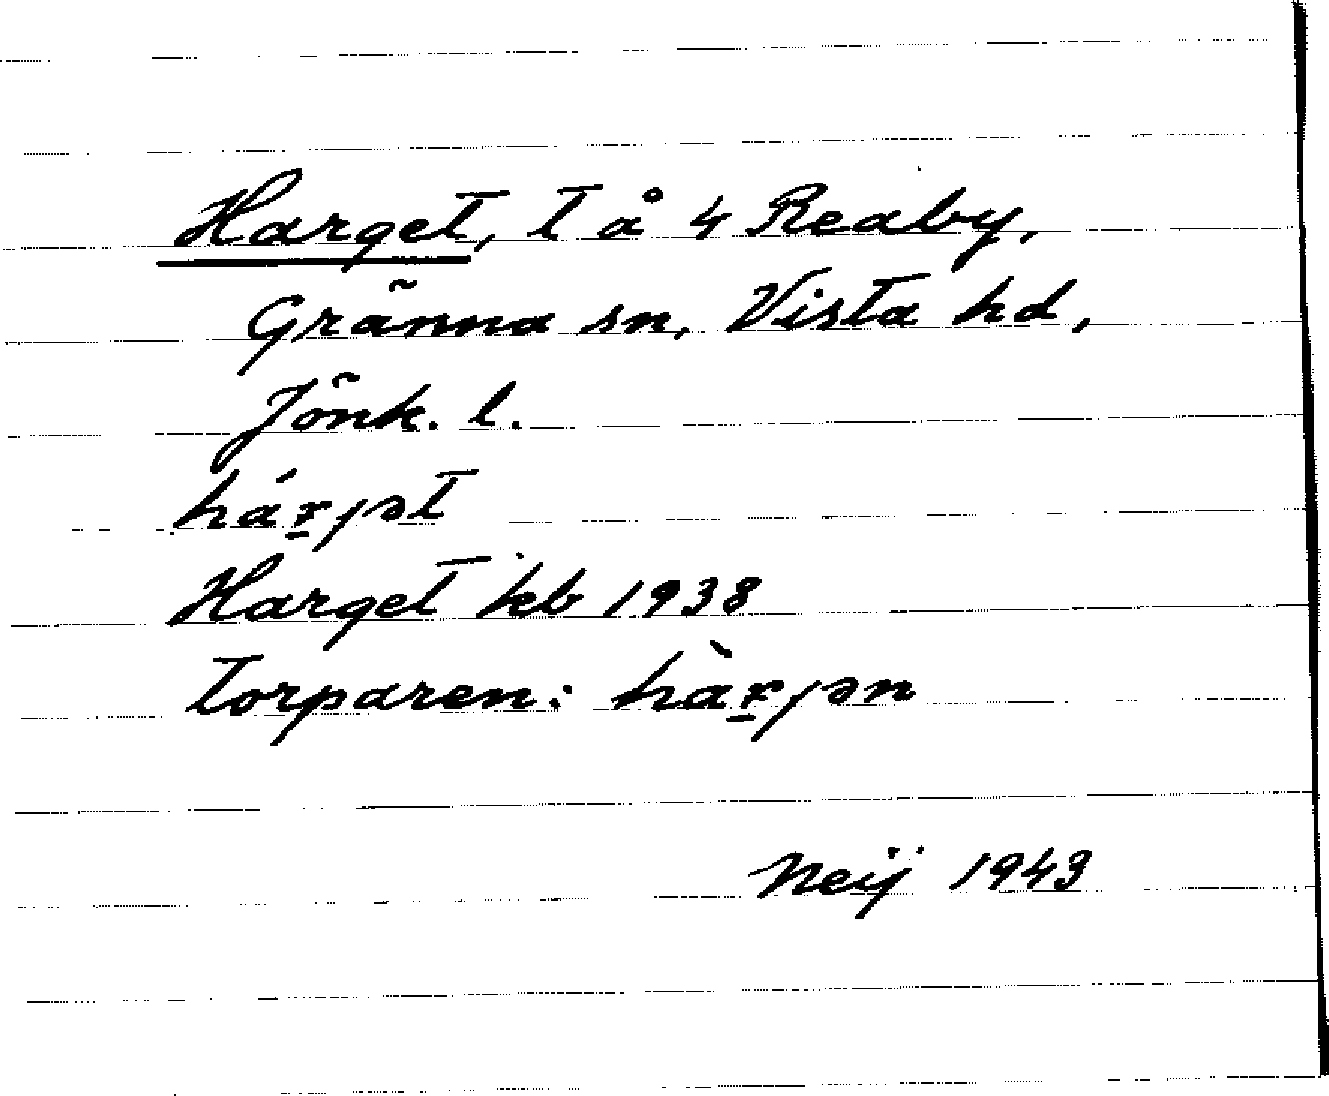 Harget, t å 4 Reaby,
Gränna sn, Vista hd,
Jönk. l.
háꞧ̱jət
Harget kb 1938
torparen: hàꞧ̱jən
Neij 1943